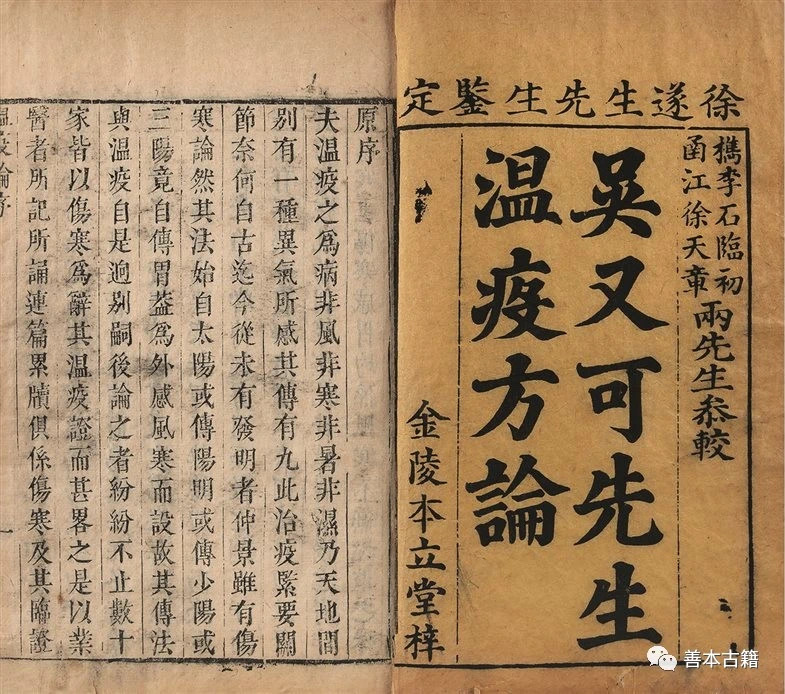 徐遂生先生鑒定
檇李石臨初
甬江徐天章
兩先生叅較
吳又可先生
温疫方論
金陵本立堂梓
原序
夫温疫之爲病非風非寒非暑非濕乃天地間
别有一種異氣所感其傳有九此治疫緊要關
節奈何自古迄今從未有發明者仲景雖有傷
寒論然其法始自太陽或傳陽明或傳少陽或
三陽竟自傳胃葢爲外感風寒而設故其傳法
與温疫自是逈别嗣後論之者紛紛不止數十
家皆以傷寒爲辭其温疫證而甚畧之是以業
醫者所記所誦連篇累牘俱係傷寒及其臨證
温疫論序
一
善本古籍